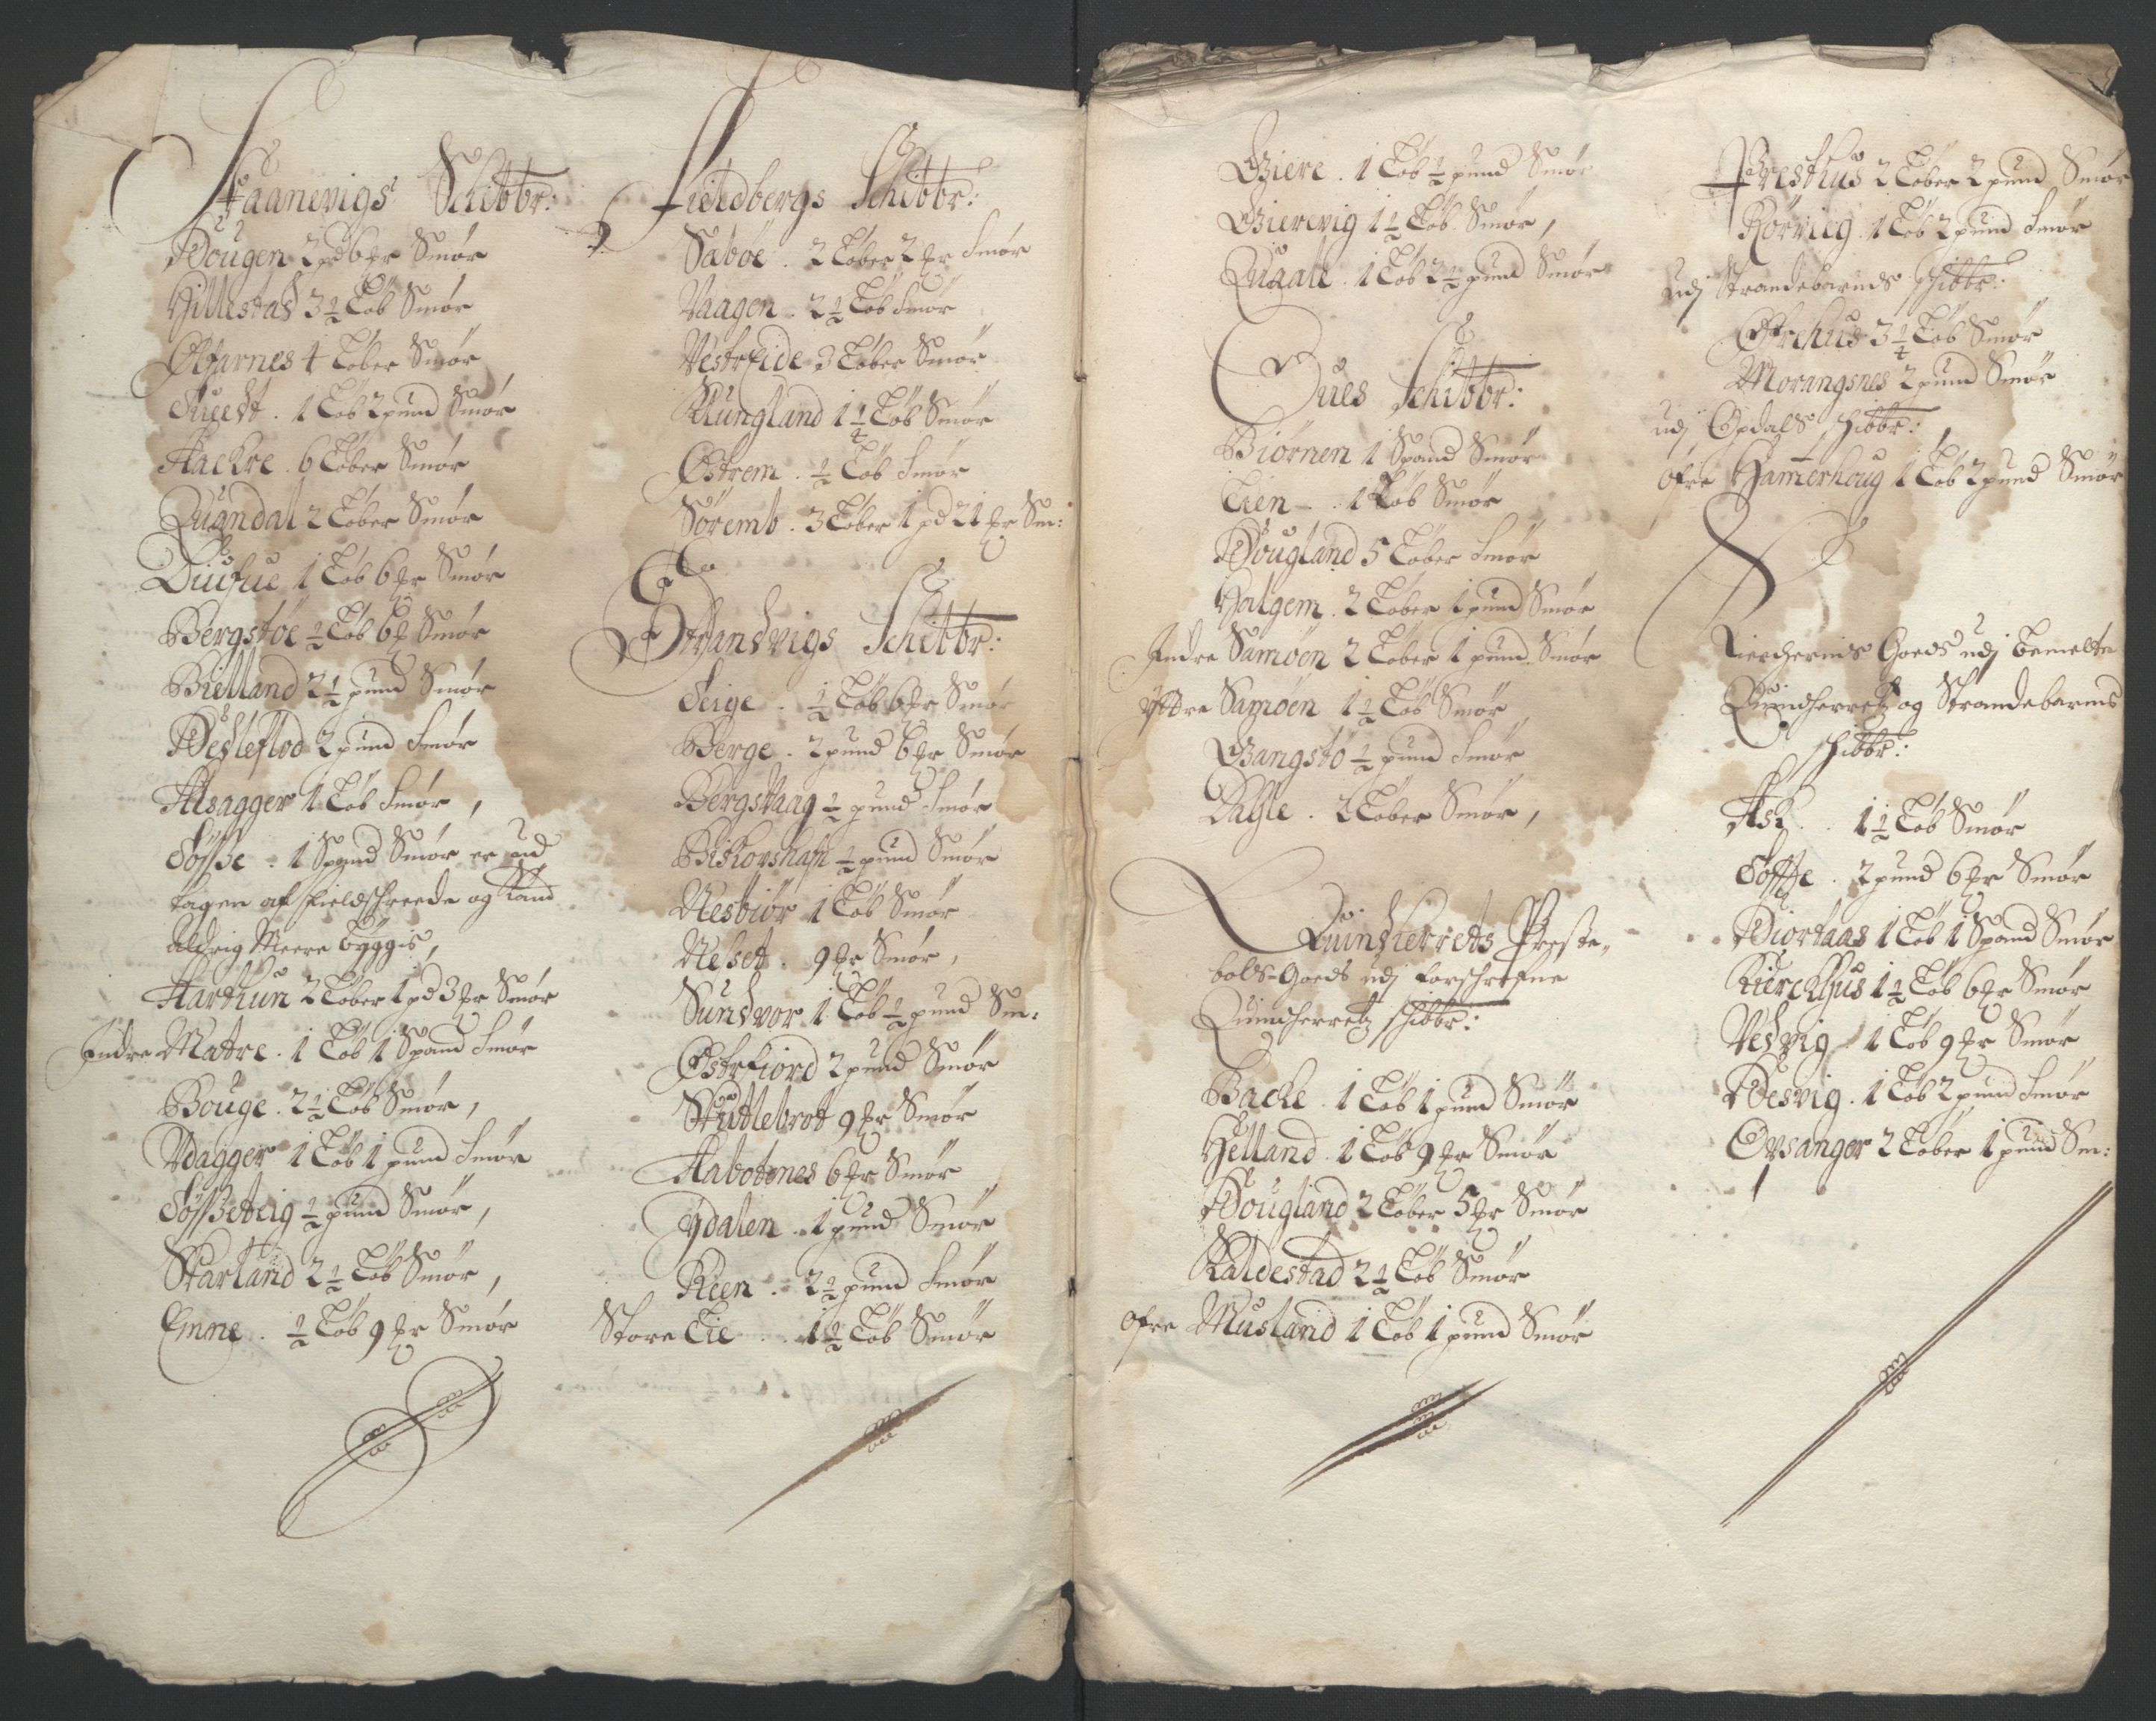 Faanevigs Schibbr:
Hougen 2 pd 6 mr Smør
Hillestad 3 1/2 Løb Smør
Olfarnes 4 Løber Smør
1 Løb 2 pund Smør
Aackre . 6 Løber Smør
Quandal 2 Løber Smør
1 Løb 6 mr Smør
Bergstøe 1/2 Løb 6 mr Smør
Bielland 2 1/2 pund Smør
Hesleflod 2 pund Smør
Alsagger 1 Løb Smør,
1 Spand Smør er
tagen af fieldschreede og kand
Aldrig Meere byggis,
Harthun 2 Løber 1 pd 3 mr Smør
Indre Matre . 1 Løb 1 Spand Smør
Bouge . 2 1/2 Løb Smør,
Vdagger 1 Løb 1 pund Smør
1/2 pund Smør,
Skarland 2 1/2 Løb Smør,
Emne . 1/2 Løb 9 mr Smør
Fieldbergs Schibbr:
Sabøe . 2 Løber 2 mr Smør
Vaagen . 2 1/2 Løb Smør
VestrEide 3 Løber Smør
Rungland 1 1/4 Løb Smør
Østrem . 1/2 Løb Smør
Søremb . 3 Løber 1 pd 21 mr Sm:
Strandvigs Schibbr:
Leige . 1/2 Løb 6 mr Smør
Berge . 2 pund 6 mr Smør
Bergsvaag 1/2 pund Smør
Biskorshafn 1/2 pund Smør
Nesbiør 1 Løb Smør
Neset . 9 mr Smør,
Sundvor 1 Løb 1/2 pund Sm:
Østrfiord 2 pund Smør
Skutlebrot 9 mr Smør
Aabotenes 6 mr Smør
Ydalen . 1 pund Smør
Reen . 2 1/2 pund Smør
Store Lie . . 1 1/2 Løb Smør
Giere . 1 Løb 1/2 pund Smør
Gierevig 1 1/2 Løb Smør,
Quaale . 1 Løb 2 1/2 pund Smør
Oues Schibbr:
Biørnen 1 Spand Smør
Lien . . 1 Løb Smør
Hougland 5 Løber Smør
Holgem . 2 Løber 1 pund Smør
Indre Samøen 2 Løber 1 pund Smør
Yttre Samøen 1 1/2 Løb Smør
Gangstø 1/2 pund Smør
Dahle . 2 Løber Smør,
Quindherrets Preste-
bols-Goeds udj forschrefne
Quindherretz schibbr:
Backe . 1 Løb 1 pund Smør
Helland . 1 Løb 9 mr Smør
Hougland 2 Løber 5 mr Smør
Kaldestad 2 1/2 Løb Smør
Ofre Musland 1 Løb 1 pund Smør
Presthus 2 Løber 2 pund Smør
Rørvieg . 1 Løb 2 pund Smør
udj Strandebarmbs schibbr:
Ofrehus 3 1/4 Løb Smør
Morangsnes 2 pund Smør
udj Opdals schibbr:
ofre Hammerhoug 1 Løb 2 pund Smør
Kierchernis Goeds udj bemelte
Quindherretz og Strandebarms
schibbr:
Ask . . 1 1/2 Løb Smør
2 pund 6 mr Smør
Hiortaas 1 Løb 1 Spand Smør
Kierckhus 1 1/2 Løb 6 mr Smør
Vedvig . 1 Løb 9 mr Smør
Hesvig . 1 Løb 2 pund Smør
Ovsanger 2 Løber 1 pund Sm: